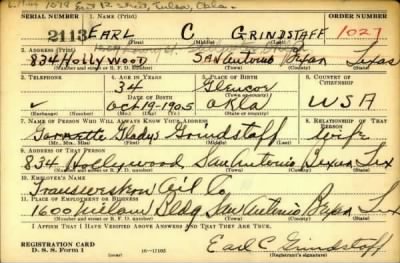 1079 East 12 Street, Tulsa, Okla.
SERIAL NUMBER 1. NAME (Print) ORDER NUMBER
2113 EARL C GRINDSTAFF 1027
(First) (Middle) (Last)
2. ADDRESS (Print)
834 HOLLYWOOD SAN Antonio Bexar Texas
(Number and street or R. F. D. number) (Town) (County) (State)
3. TELEPHONE 4. AGE IN YEARS 5. PLACE OF BIRTH 6. COUNTRY OF CITIZENSHIP
34 Glencoe
DATE OF BIRTH (Town or county)
OCT 19-1905 OKLA USA
(Exchange) (Number) (Mo.) (Day) (Yr.) (State or country)
7. NAME OF PERSON WHO WILL ALWAYS KNOW YOUR ADDRESS 8. RELATIONSHIP OF THAT PERSON
Gladys Grindstaff Wife
(Mr., Mrs., Miss) (First) (Middle) (Last)
9. ADDRESS OF THAT PERSON
834 Hollywood San Antonio Bexar Tex
(Number and street or R. F. D. number) (Town) (County) (State)
10. EMPLOYER'S NAME
Transwestern Oil Co
11. PLACE OF EMPLOYMENT OR BUSINESS
1600 Milam Bldg San Antonio Bexar Tex
(Number and street or R. F. D. number) (Town) (County) (State)
I AFFIRM THAT I HAVE VERIFIED ABOVE ANSWERS AND THAT THEY ARE TRUE.
REGISTRATION CARD
D. S. S. Form 1 16-17105 Earl C Grindstaff
(Registrant's signature)